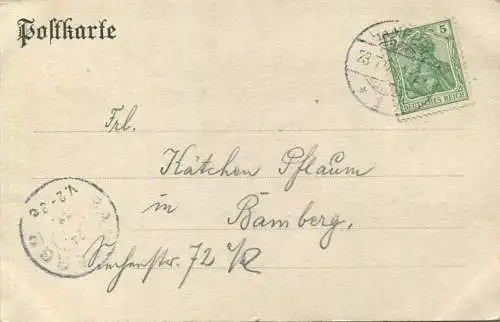 Postkarte
5
DEUTSCHES REICH
23.7.
Frl.
Kätchen Pflaum
in
Bamberg,
72
V.2-3